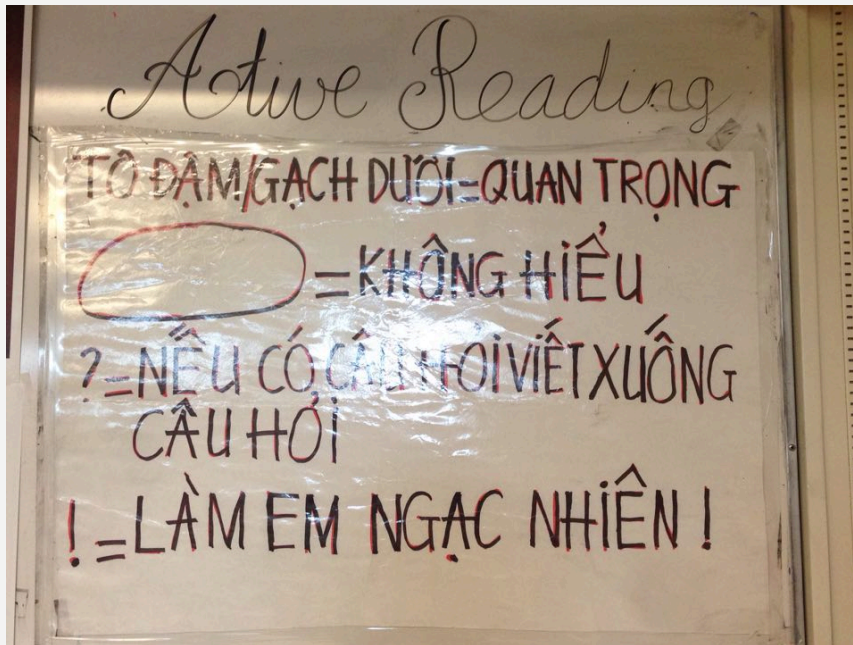 Active Reading
TÔ ĐẬM/GẠCH DƯỚI=QUAN TRỌNG
=KHÔNG HIỂU
?=NẾU CÓ CÂU HỎI VIẾT XUỐNG
CÂU HỎI
!=LÀM EM NGẠC NHIÊN!